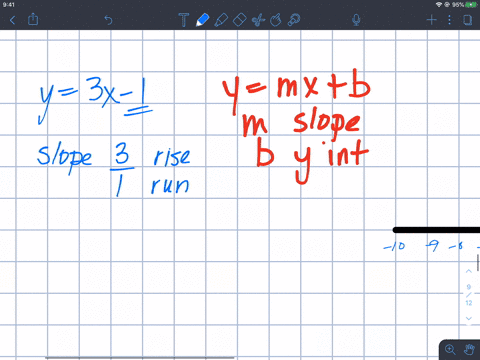 9:41
95%
y = 3x - 1
slope 3/1 rise
run
y = mx + b
m slope
b y int
-10 -9 -8
9
12